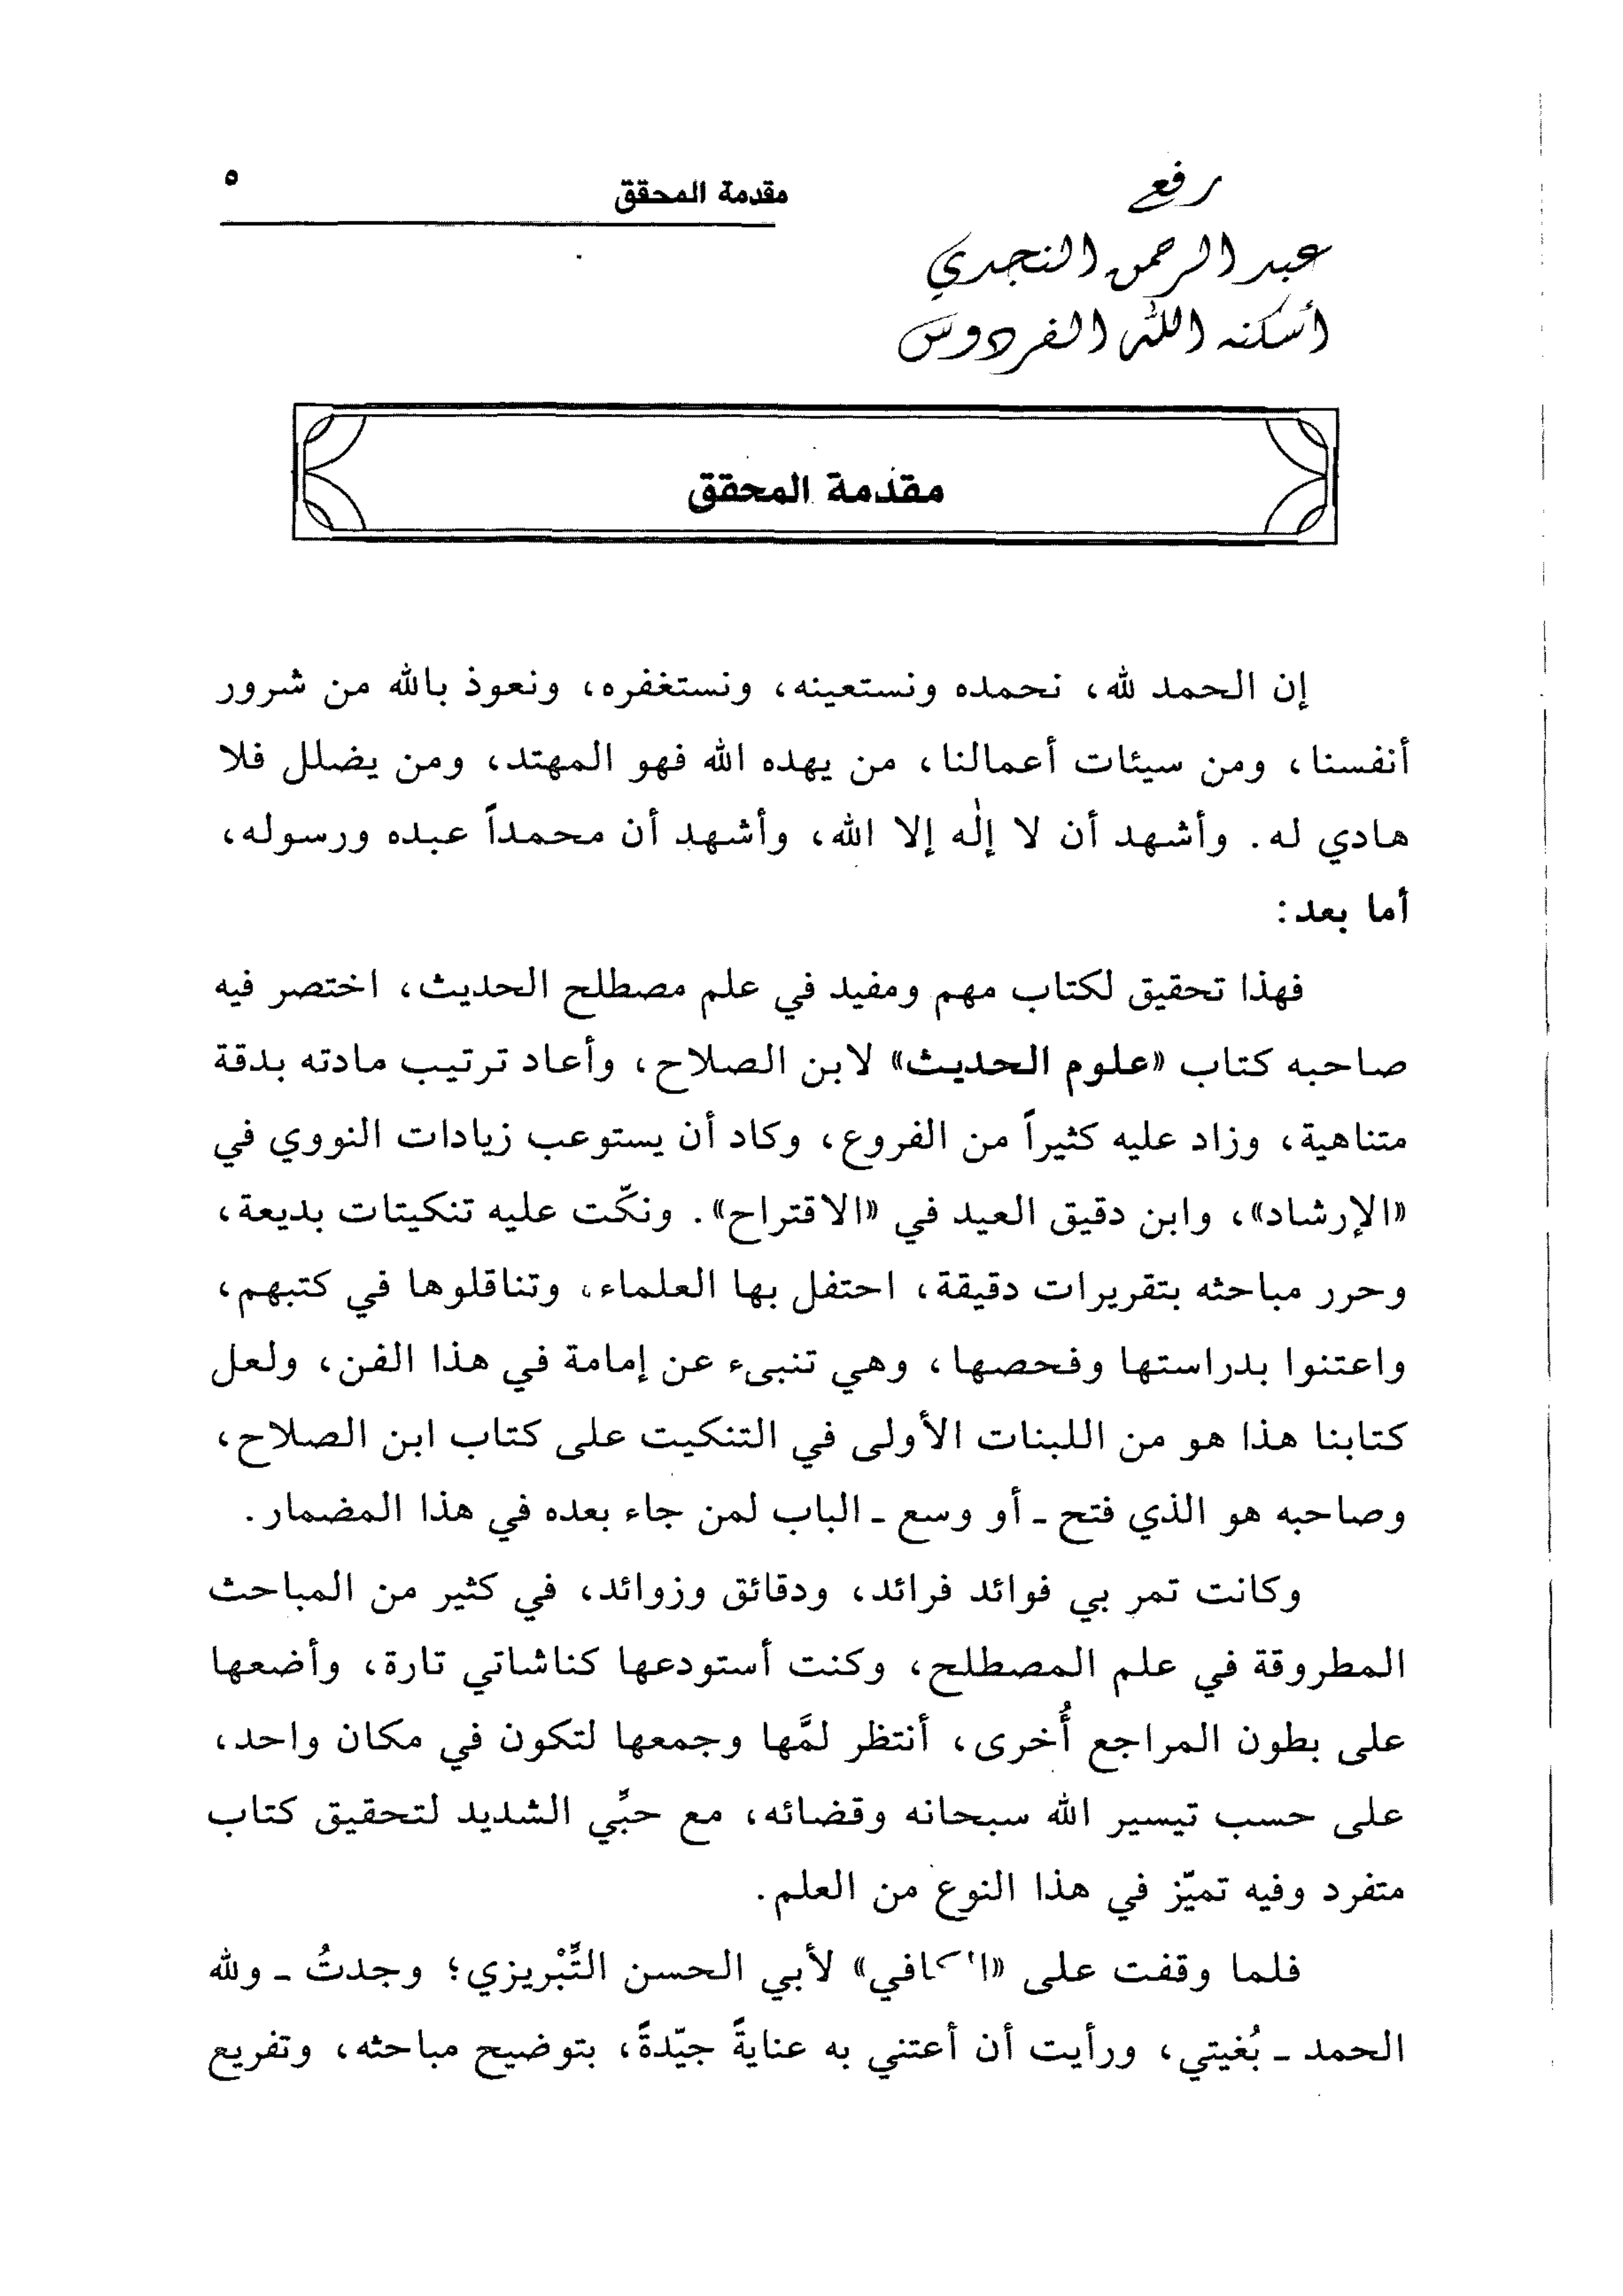 مقدمة المحقق ٥
رفع
عبد الرحمن النجدي
أسكنه الله الفردوس
مقدمة المحقق
إن الحمد لله، نحمده ونستعينه، ونستغفره، ونعوذ بالله من شرور
أنفسنا، ومن سيئات أعمالنا، من يهده الله فهو المهتد، ومن يضلل فلا
هادي له. وأشهد أن لا إلٰه إلا الله، وأشهد أن محمداً عبده ورسوله،
أما بعد:
فهذا تحقيق لكتاب مهم ومفيد في علم مصطلح الحديث، اختصر فيه
صاحبه كتاب «علوم الحديث» لابن الصلاح، وأعاد ترتيب مادته بدقة
متناهية، وزاد عليه كثيراً من الفروع، وكاد أن يستوعب زيادات النووي في
«الإرشاد»، وابن دقيق العيد في «الاقتراح». ونكّت عليه تنكيتات بديعة،
وحرر مباحثه بتقريرات دقيقة، احتفل بها العلماء، وتناقلوها في كتبهم،
واعتنوا بدراستها وفحصها، وهي تنبىء عن إمامة في هذا الفن، ولعل
كتابنا هذا هو من اللبنات الأولى في التنكيت على كتاب ابن الصلاح،
وصاحبه هو الذي فتح ـ أو وسع ـ الباب لمن جاء بعده في هذا المضمار.
وكانت تمر بي فوائد فرائد، ودقائق وزوائد، في كثير من المباحث
المطروقة في علم المصطلح، وكنت أستودعها كناشاتي تارة، وأضعها
على بطون المراجع أُخرى، أنتظر لمَّها وجمعها لتكون في مكان واحد،
على حسب تيسير الله سبحانه وقضائه، مع حبِّي الشديد لتحقيق كتاب
متفرد وفيه تميّز في هذا النوع من العلم.
فلما وقفت على «الكافي» لأبي الحسن التِّبْريزي؛ وجدتُ ـ ولله
الحمد ـ بُغيتي، ورأيت أن أعتني به عنايةً جيّدةً، بتوضيح مباحثه، وتفريع